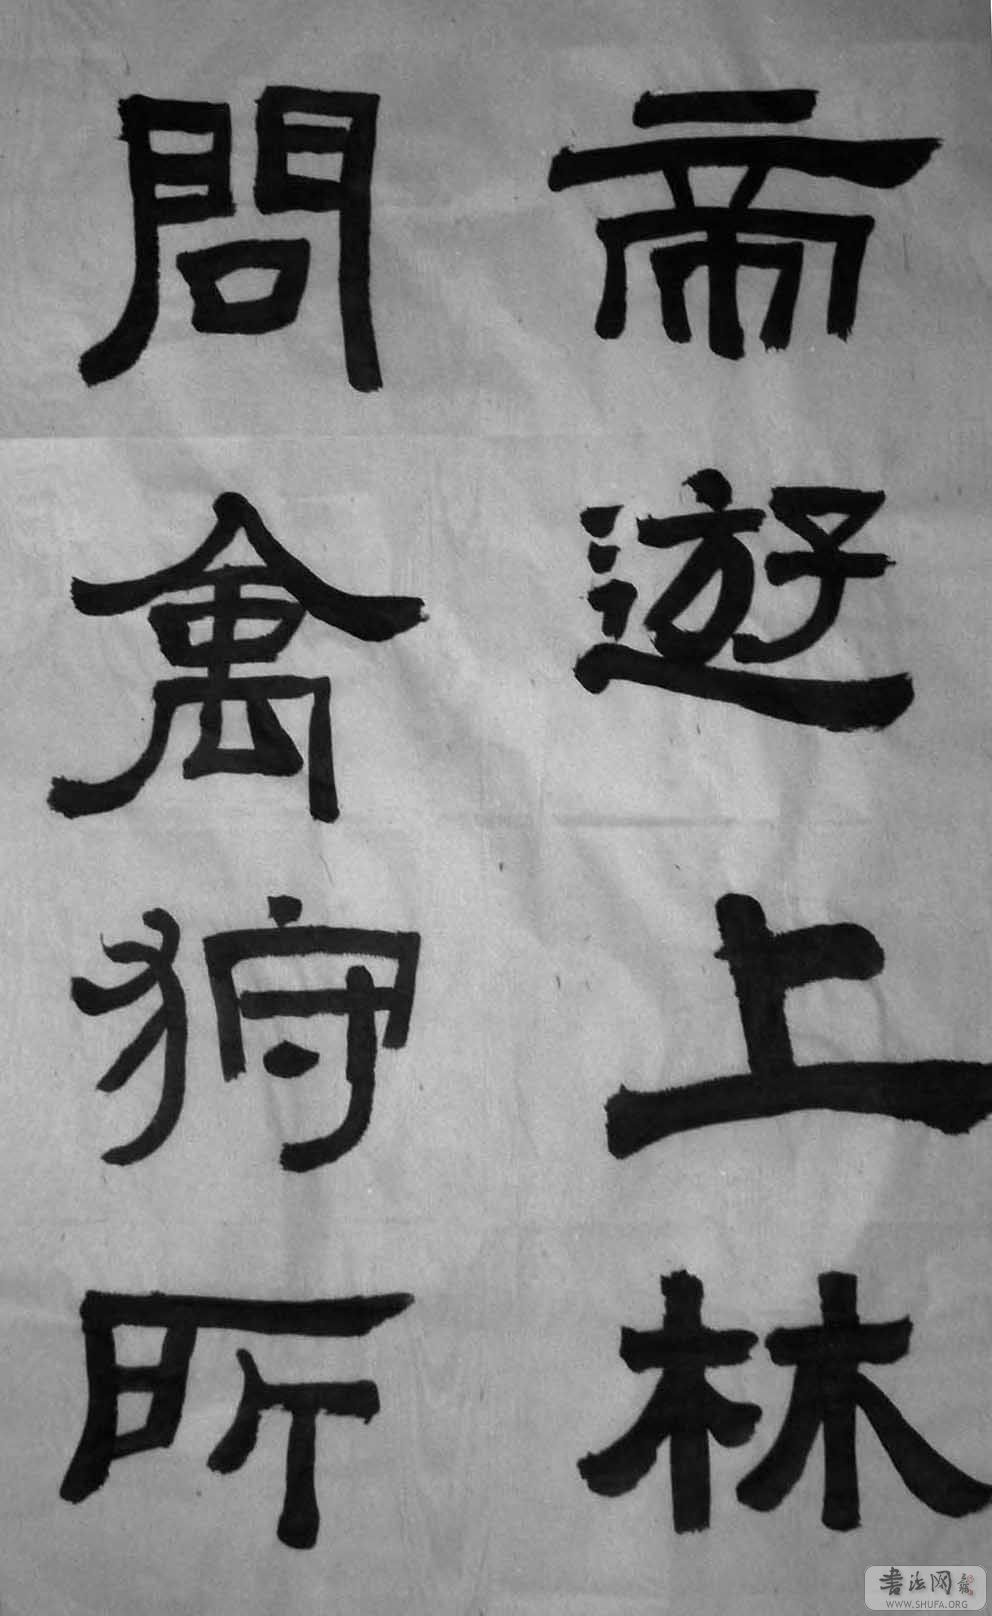 帝遊上林
問禽狩所
書法网
WWW.SHUFA.ORG